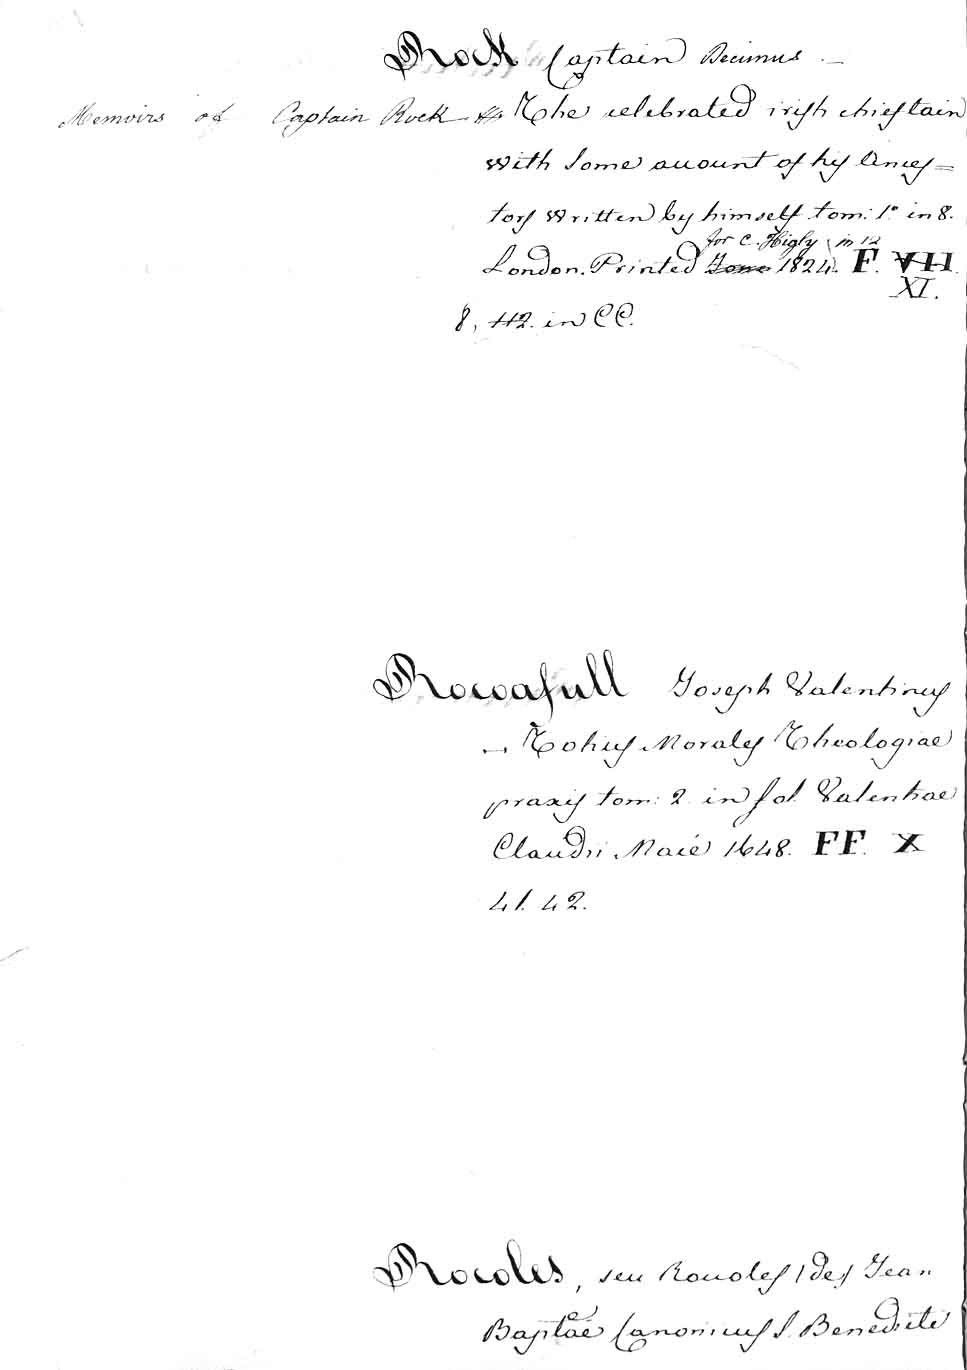 Rock Captain Decimus. —
Memoirs of Captain Rock — The celebrated irish chieftain
with Some account of his Ances=
tors Written by himself tom: 1.° in 8.
for C. Higly in 12
London. Printed 1824. F. VII.
XI.
8, 112. in CC.
Rocafull Joseph Valentinus
— Totius Moralis Theologiae
praxis tom: 2 in fol. Valentiae
Claudii Macé 1648. FF. X
41. 42.
Rocoles, seu Rouoles (des Jean
Baptãe Canonicus S. Benedicti